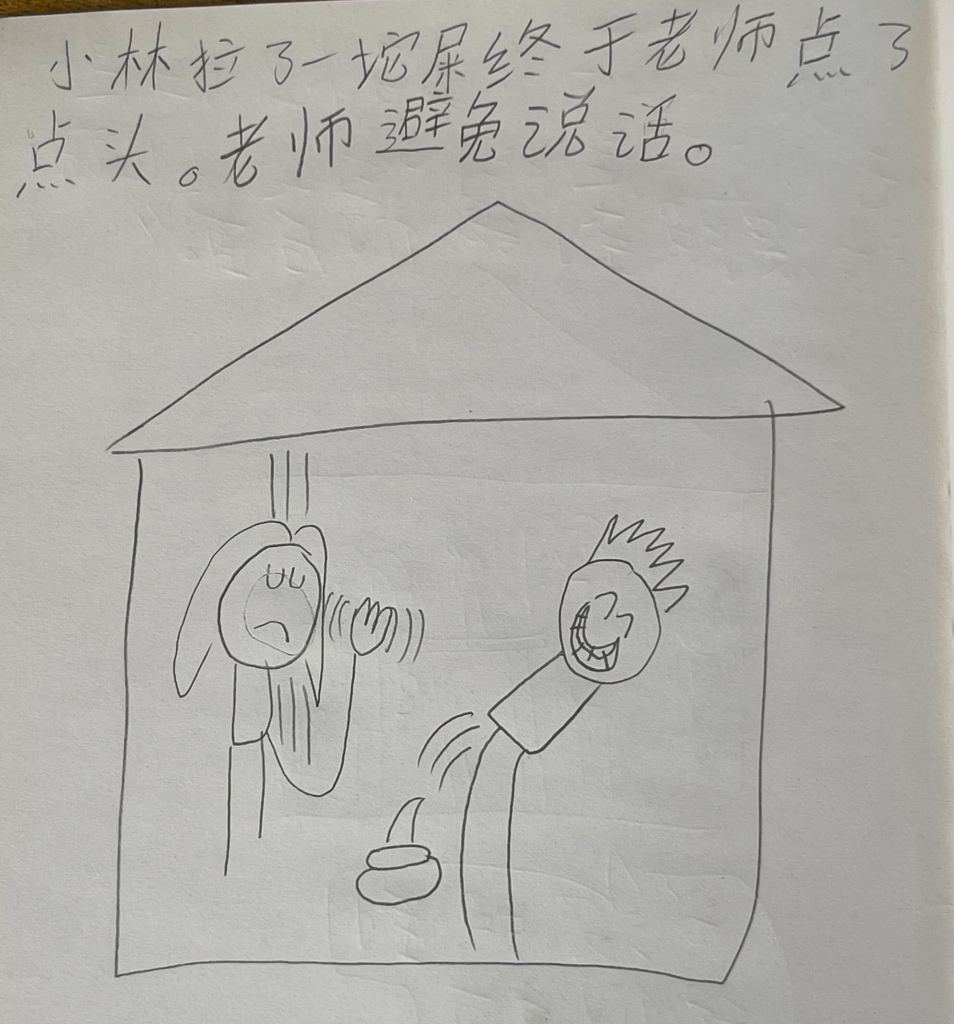 小林拉了一坨屎终于老师点了
点头。老师避免说话。